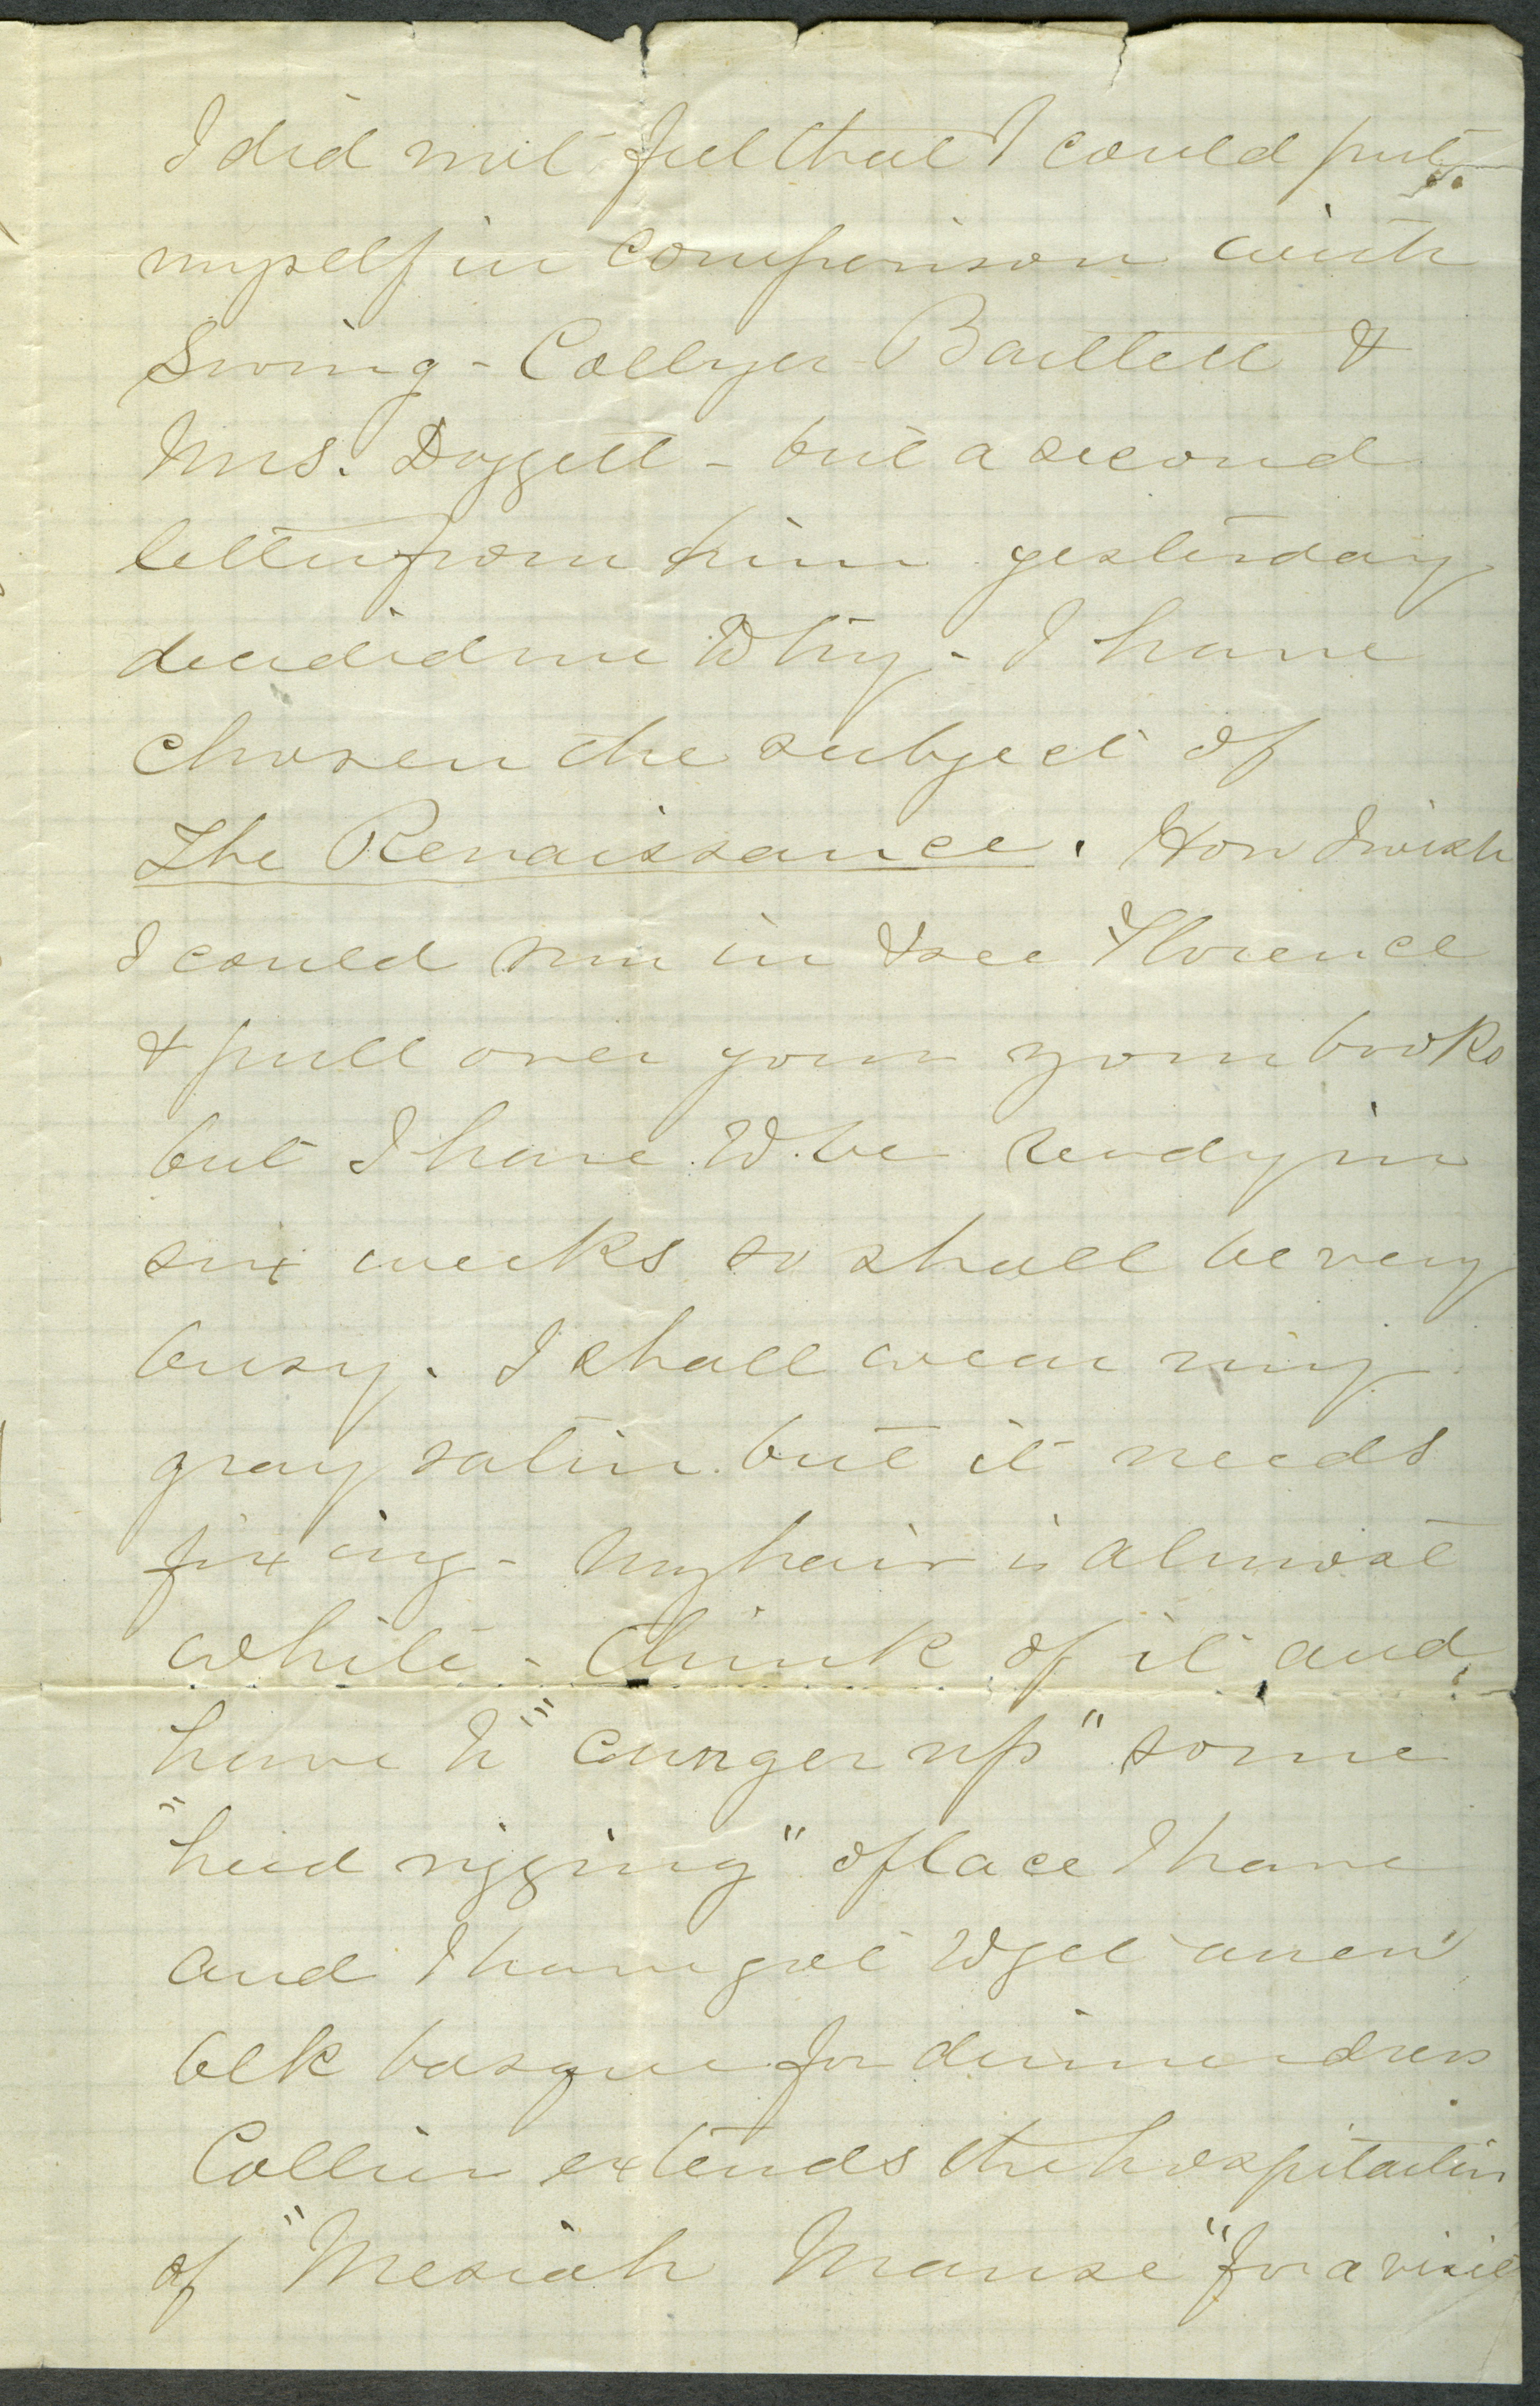 I did not feel that I could put
myself in comparison with
Swing - Collyer Bartlett &
Mrs. Doggett - but a second
letter from him yesterday
decided me to try - I have
chosen the subject of
The Renaissance. How I wish
I could run in & see Florence
& pull over your your books
but I have to be ready in
six weeks so shall be very
busy. I shall wear my
gray satin but it needs
fixing - My hair is almost
white - think of it and
have to "cunger up" some
"head rigging" of lace I have
and I have got to get a new
blk basque for dinner dress
Collier extends the hospitalities
of "Mesiah Manse" for a visit